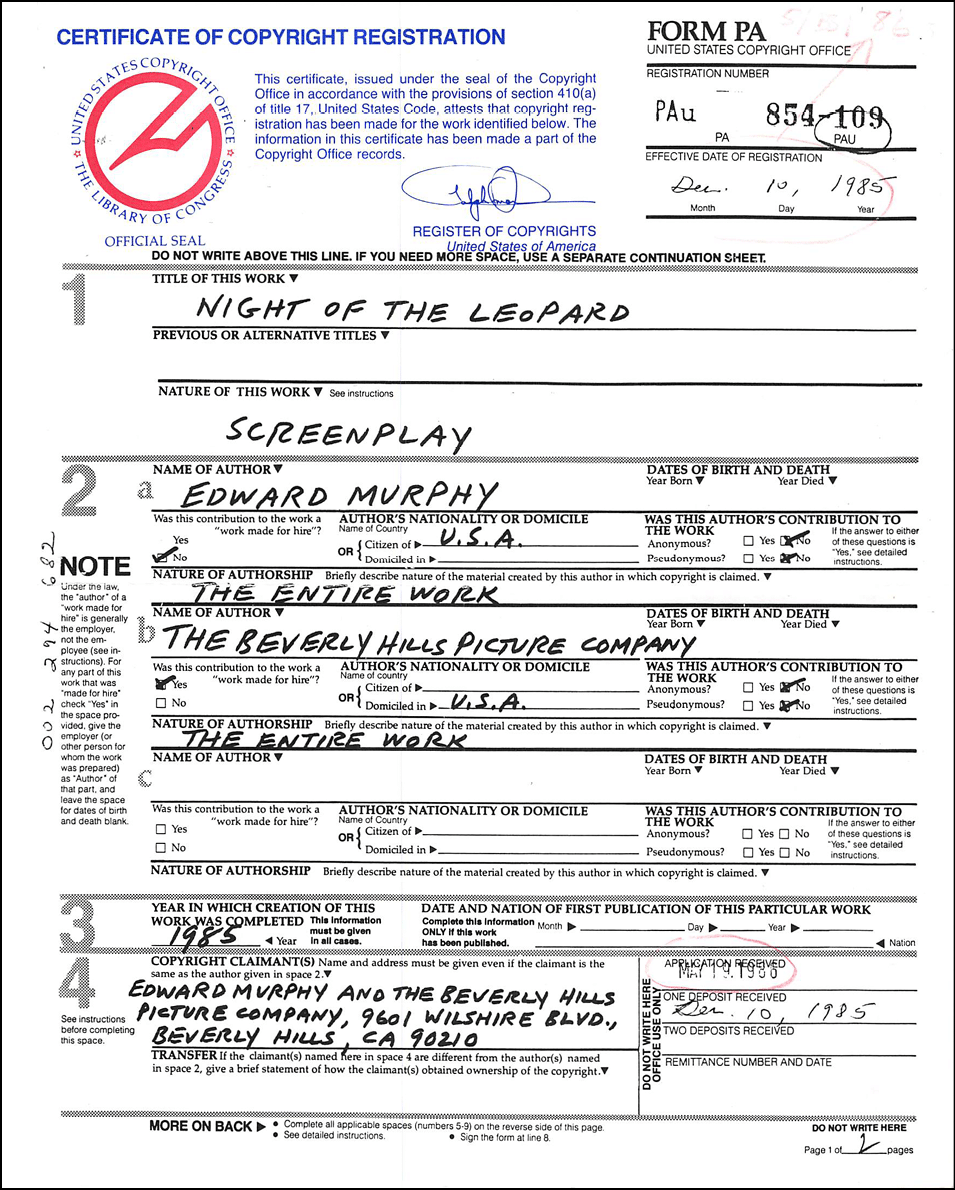 CERTIFICATE OF COPYRIGHT REGISTRATION
FORM PA
UNITED STATES COPYRIGHT OFFICE
UNITED STATES COPYRIGHT OFFICE
THE LIBRARY OF CONGRESS
OFFICIAL SEAL
This certificate, issued under the seal of the Copyright
Office in accordance with the provisions of section 410(a)
of title 17, United States Code, attests that copyright reg-
istration has been made for the work identified below. The
information in this certificate has been made a part of the
Copyright Office records.
REGISTER OF COPYRIGHTS
United States of America
REGISTRATION NUMBER
PAu 854-109
PA PAU
EFFECTIVE DATE OF REGISTRATION
Dec. 10, 1985
Month Day Year
DO NOT WRITE ABOVE THIS LINE. IF YOU NEED MORE SPACE, USE A SEPARATE CONTINUATION SHEET.
1
TITLE OF THIS WORK ▼
NIGHT OF THE LEOPARD
PREVIOUS OR ALTERNATIVE TITLES ▼
NATURE OF THIS WORK ▼ See instructions
SCREENPLAY
2
NAME OF AUTHOR ▼
DATES OF BIRTH AND DEATH
Year Born ▼ Year Died ▼
a EDWARD MURPHY
Was this contribution to the work a
"work made for hire"?
Yes
No
AUTHOR'S NATIONALITY OR DOMICILE
Name of Country
OR { Citizen of ▶ U.S.A.
Domiciled in ▶
WAS THIS AUTHOR'S CONTRIBUTION TO
THE WORK
Anonymous? Yes No
Pseudonymous? Yes No
If the answer to either
of these questions is
"Yes," see detailed
instructions.
NATURE OF AUTHORSHIP Briefly describe nature of the material created by this author in which copyright is claimed. ▼
THE ENTIRE WORK
NAME OF AUTHOR ▼
DATES OF BIRTH AND DEATH
Year Born ▼ Year Died ▼
b THE BEVERLY HILLS PICTURE COMPANY
Was this contribution to the work a
"work made for hire"?
Yes
No
AUTHOR'S NATIONALITY OR DOMICILE
Name of country
OR { Citizen of ▶
Domiciled in ▶ U.S.A.
WAS THIS AUTHOR'S CONTRIBUTION TO
THE WORK
Anonymous? Yes No
Pseudonymous? Yes No
If the answer to either
of these questions is
"Yes," see detailed
instructions.
NATURE OF AUTHORSHIP Briefly describe nature of the material created by this author in which copyright is claimed. ▼
THE ENTIRE WORK
NAME OF AUTHOR ▼
DATES OF BIRTH AND DEATH
Year Born ▼ Year Died ▼
c
Was this contribution to the work a
"work made for hire"?
Yes
No
AUTHOR'S NATIONALITY OR DOMICILE
Name of Country
OR { Citizen of ▶
Domiciled in ▶
WAS THIS AUTHOR'S CONTRIBUTION TO
THE WORK
Anonymous? Yes No
Pseudonymous? Yes No
If the answer to either
of these questions is
"Yes," see detailed
instructions.
NATURE OF AUTHORSHIP Briefly describe nature of the material created by this author in which copyright is claimed. ▼
NOTE
Under the law,
the "author" of a
"work made for
hire" is generally
the employer,
not the em-
ployee (see in-
structions). For
any part of this
work that was
"made for hire"
check "Yes" in
the space pro-
vided, give the
employer (or
other person for
whom the work
was prepared)
as "Author" of
that part, and
leave the space
for dates of birth
and death blank.
002 294 682
3
YEAR IN WHICH CREATION OF THIS
WORK WAS COMPLETED This information
must be given
in all cases.
1985 ◀ Year
DATE AND NATION OF FIRST PUBLICATION OF THIS PARTICULAR WORK
Complete this information
ONLY if this work
has been published.
Month ▶ Day ▶ Year ▶
◀ Nation
4
See instructions
before completing
this space.
COPYRIGHT CLAIMANT(S) Name and address must be given even if the claimant is the
same as the author given in space 2.▼
EDWARD MURPHY AND THE BEVERLY HILLS
PICTURE COMPANY, 9601 WILSHIRE BLVD.,
BEVERLY HILLS, CA 90210
TRANSFER If the claimant(s) named here in space 4 are different from the author(s) named
in space 2, give a brief statement of how the claimant(s) obtained ownership of the copyright.▼
DO NOT WRITE HERE
OFFICE USE ONLY
APPLICATION RECEIVED
MAY 19.1986
ONE DEPOSIT RECEIVED
Dec. 10, 1985
TWO DEPOSITS RECEIVED
REMITTANCE NUMBER AND DATE
MORE ON BACK ▶
• Complete all applicable spaces (numbers 5-9) on the reverse side of this page.
• See detailed instructions.
• Sign the form at line 8.
DO NOT WRITE HERE
Page 1 of 2 pages